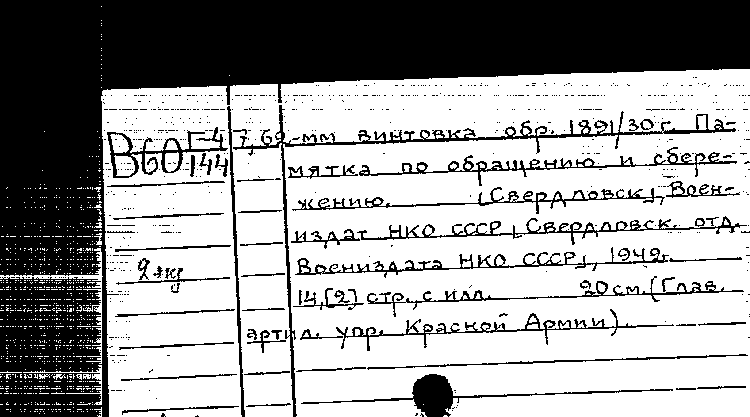 В60 Г-4 7,62-мм винтовка обр. 1891/30 г. Па-
144 мятка по обращению и сбере-
жению. [Свердловск], Воен-
издат НКО СССР [Свердловск. отд.
2 экз Воениздата НКО СССР], 1942г.
14,[2] стр., с илл. 20 см. (Глав.
артил. упр. Красной Армии).